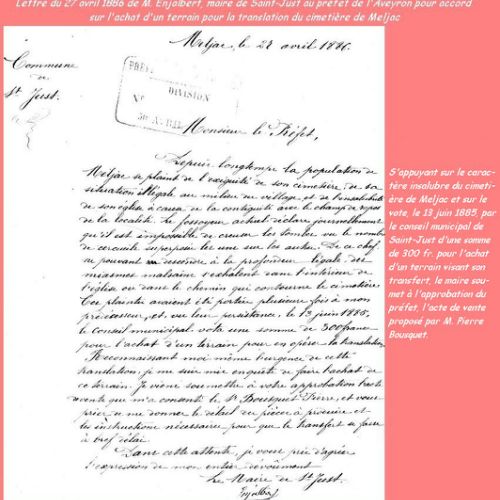 Lettre du 27 avril 1886 de M. Enjalbert, maire de Saint-Just au préfet de l'Aveyron pour accord
sur l'achat d'un terrain pour la translation du cimetière de Meljac
Meljac, le 27 avril 1886.
Commune
de
St Just.
PRÉF
DIVISION
N°
30 AVRIL
Monsieur le Préfet,
Depuis longtemps la population de
Meljac se plaint de l'exiguité de son cimetière, de sa
situation illégale au milieu du village et de l'insalubrité
de son église, à cause de la contiguité avec le champ de repos
de la localité. Le fossoyeur actuel déclare journellement
qu'il est impossible de creuser les tombes vu le nombre
de cercueils superposés les uns sur les autres. De ce chef
ne pouvant descendre à la profondeur légale, des
miasmes malsains s'exhalent dans l'intérieur de
l'église ou dans le chemin qui contourne le cimetière
Ces plaintes avaient été portées plusieurs fois à mon
prédécesseur, et vu leur persistance, le 13 juin 1885,
le Conseil municipal vota une somme de 300 francs
pour l'achat d'un terrain pour en opérer la translation.
Reconnaissant moi même l'urgence de cette
translation, je me suis mis en quête de faire l'achat de
ce terrain. Je viens soumettre à votre approbation l'acte
vente que m'a consenti le Sr Bousquet Pierre, et vous
prier de me donner le détail des pièces à produire et
les instructions nécessaires pour que le transfert se fasse
à bref délai.
Dans cette attente, je vous prie d'agréer
l'expression de mon entier dévouement
Le Maire de St Just.
Enjalbert
S'appuyant sur le carac-
tère insalubre du cimeti-
ère de Meljac et sur le
vote, le 13 juin 1885, par
le conseil municipal de
Saint-Just d'une somme
de 300 fr. pour l'achat
d'un terrain visant son
transfert, le maire sou-
met à l'approbation du
préfet, l'acte de vente
proposé par M. Pierre
Bousquet.